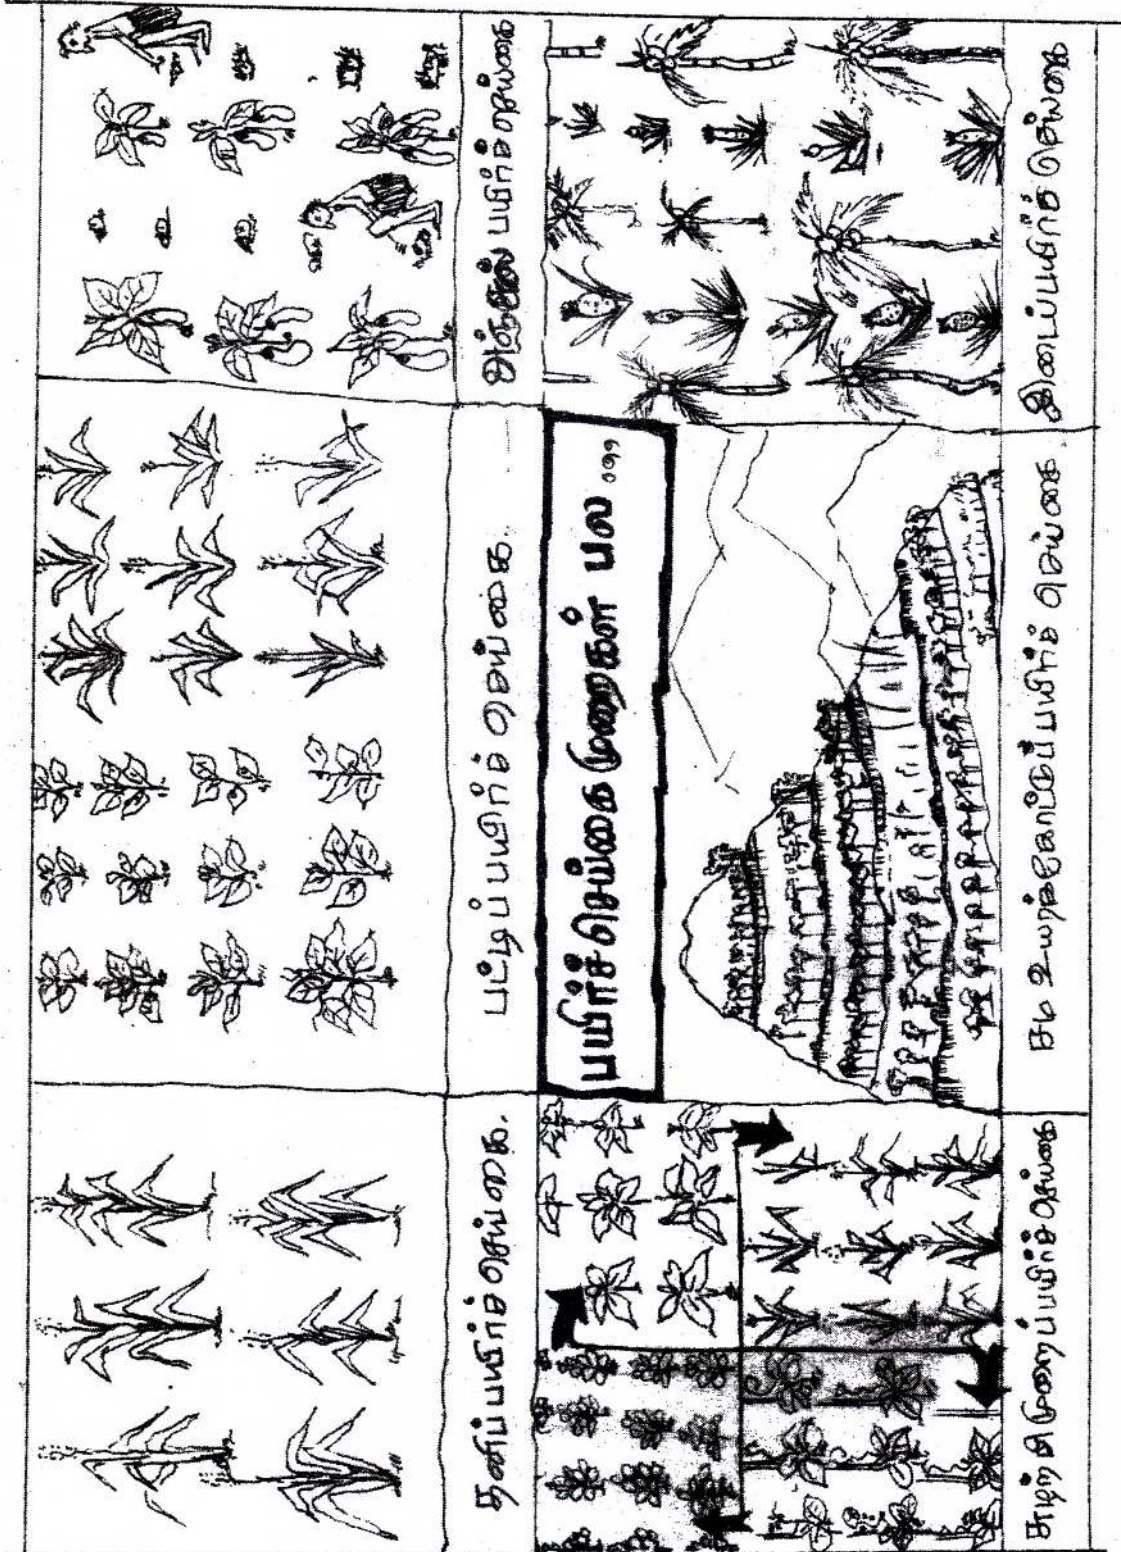 தனிப்பயிர்ச் செய்கை.
பட்டிப் பயிர்ச் செய்கை.
அஞ்சல் பயிர்ச்செய்கை
பயிர்ச்செய்கை முறைகள் பல...
சுழற்சிமுறைப் பயிர்ச்செய்கை
சம உயர்க்கோட்டுப் பயிர்ச் செய்கை.
இடைப்பயிர்ச் செய்கை